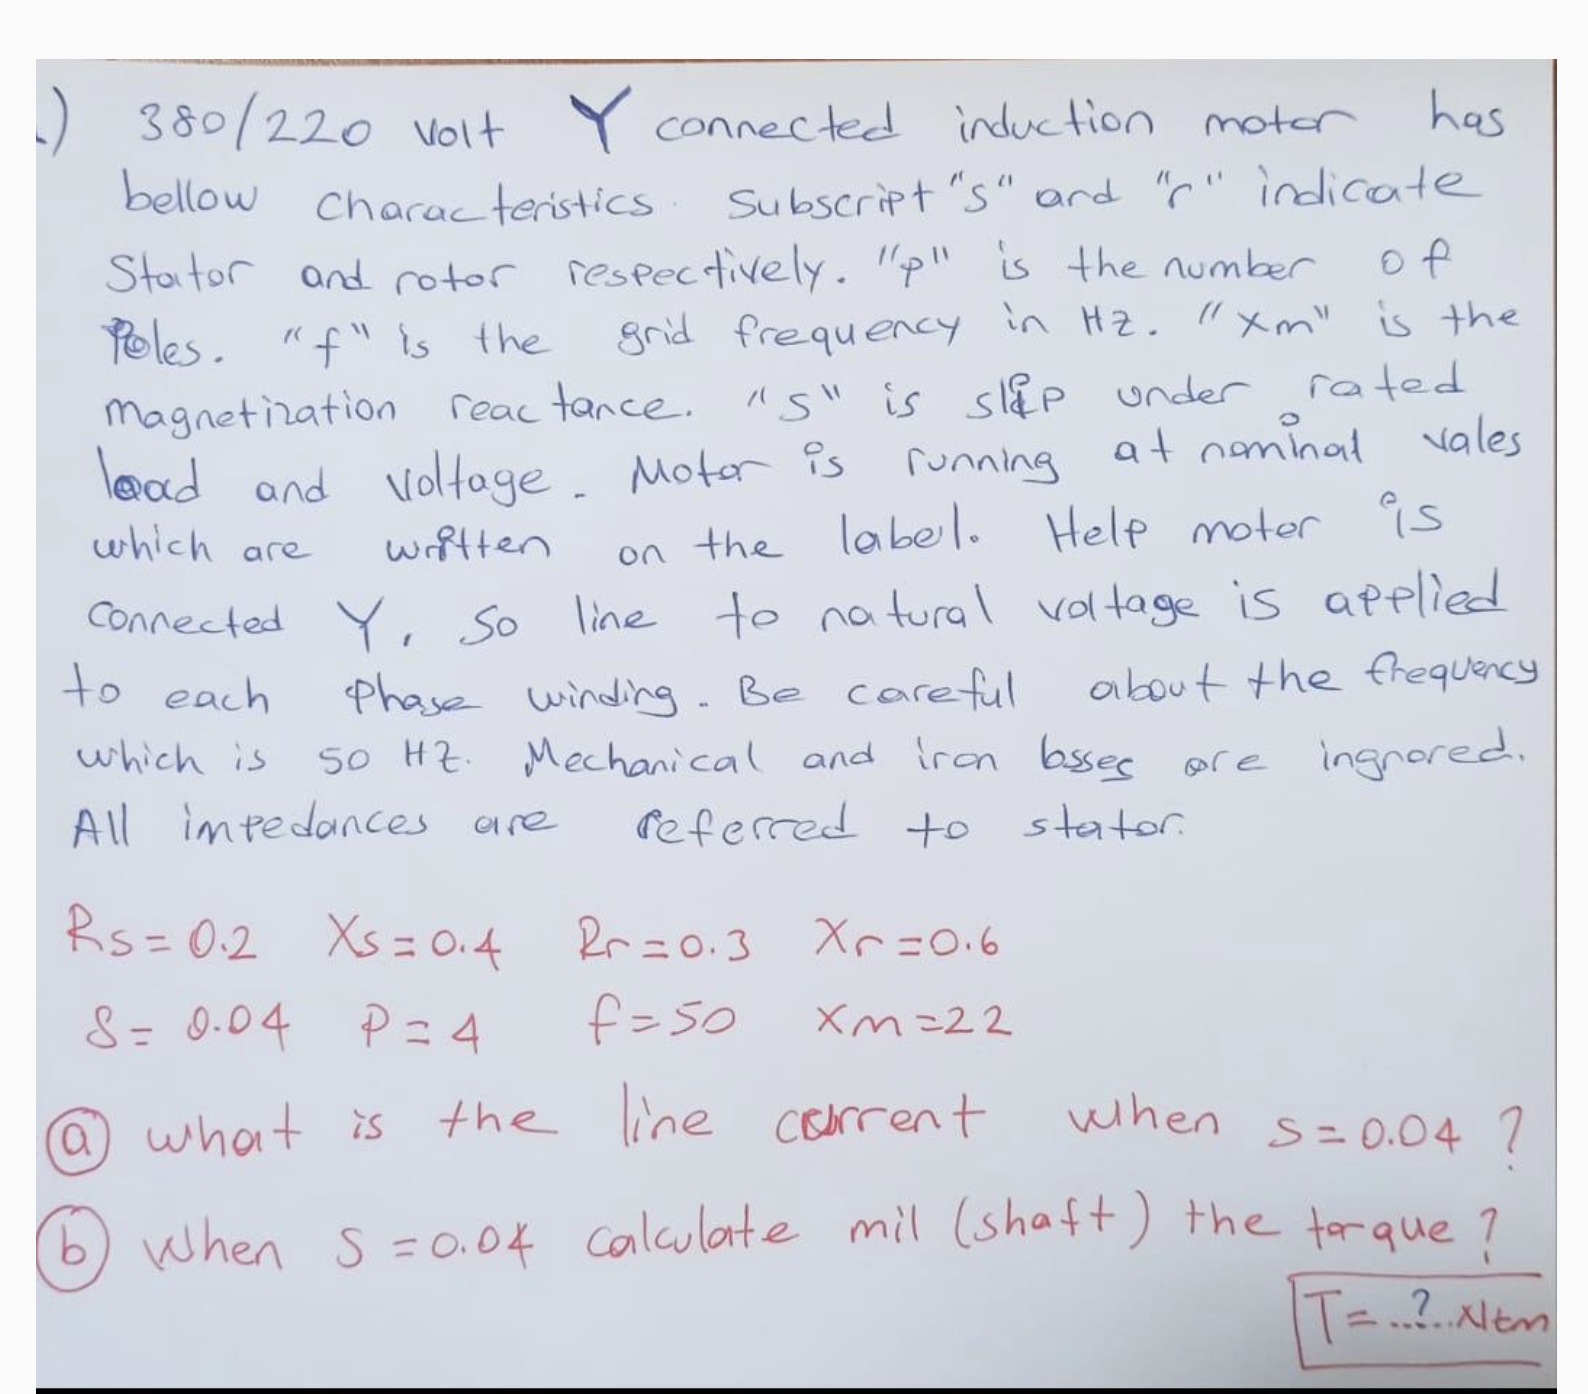 .) 380/220 volt Y connected induction motor has
bellow characteristics. Subscript "s" and "r" indicate
Stator and rotor respectively. "p" is the number of
Poles. "f" is the grid frequency in Hz. "xm" is the
magnetization reactance. "s" is slip under rated
load and voltage. Motor is running at nominal vales
which are written on the label. Help motor is
connected Y, so line to natural voltage is applied
to each phase winding. Be careful about the frequency
which is 50 Hz. Mechanical and iron losses are ingnored.
All impedances are referred to stator.
Rs = 0.2 Xs = 0.4 Rr = 0.3 Xr = 0.6
S = 0.04 P = 4 f = 50 Xm = 22
(a) what is the line current when s = 0.04 ?
(b) when s = 0.04 calculate mil (shaft) the torque ?
T = ...?.. Ntm